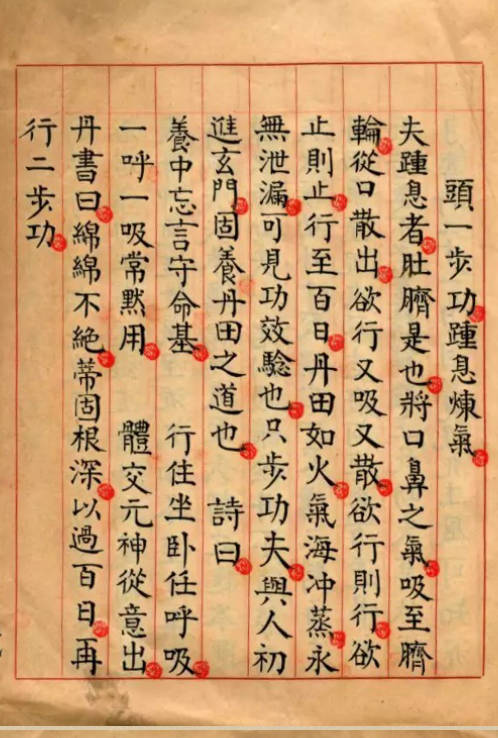 頭一步功踵息煉氣
夫踵息者肚臍是也將口鼻之氣吸至臍
輪從口散出欲行又吸又散欲行則行欲
止則止行至百日丹田如火氣海冲蒸永
無泄漏可見功效驗也只步功夫與人初
進玄門固養丹田之道也 詩曰
養中忘言守命基 行住坐卧任呼吸
一呼一吸常默用 體交元神從意出
丹書曰綿綿不絶蒂固根深以過百日再
行二步功